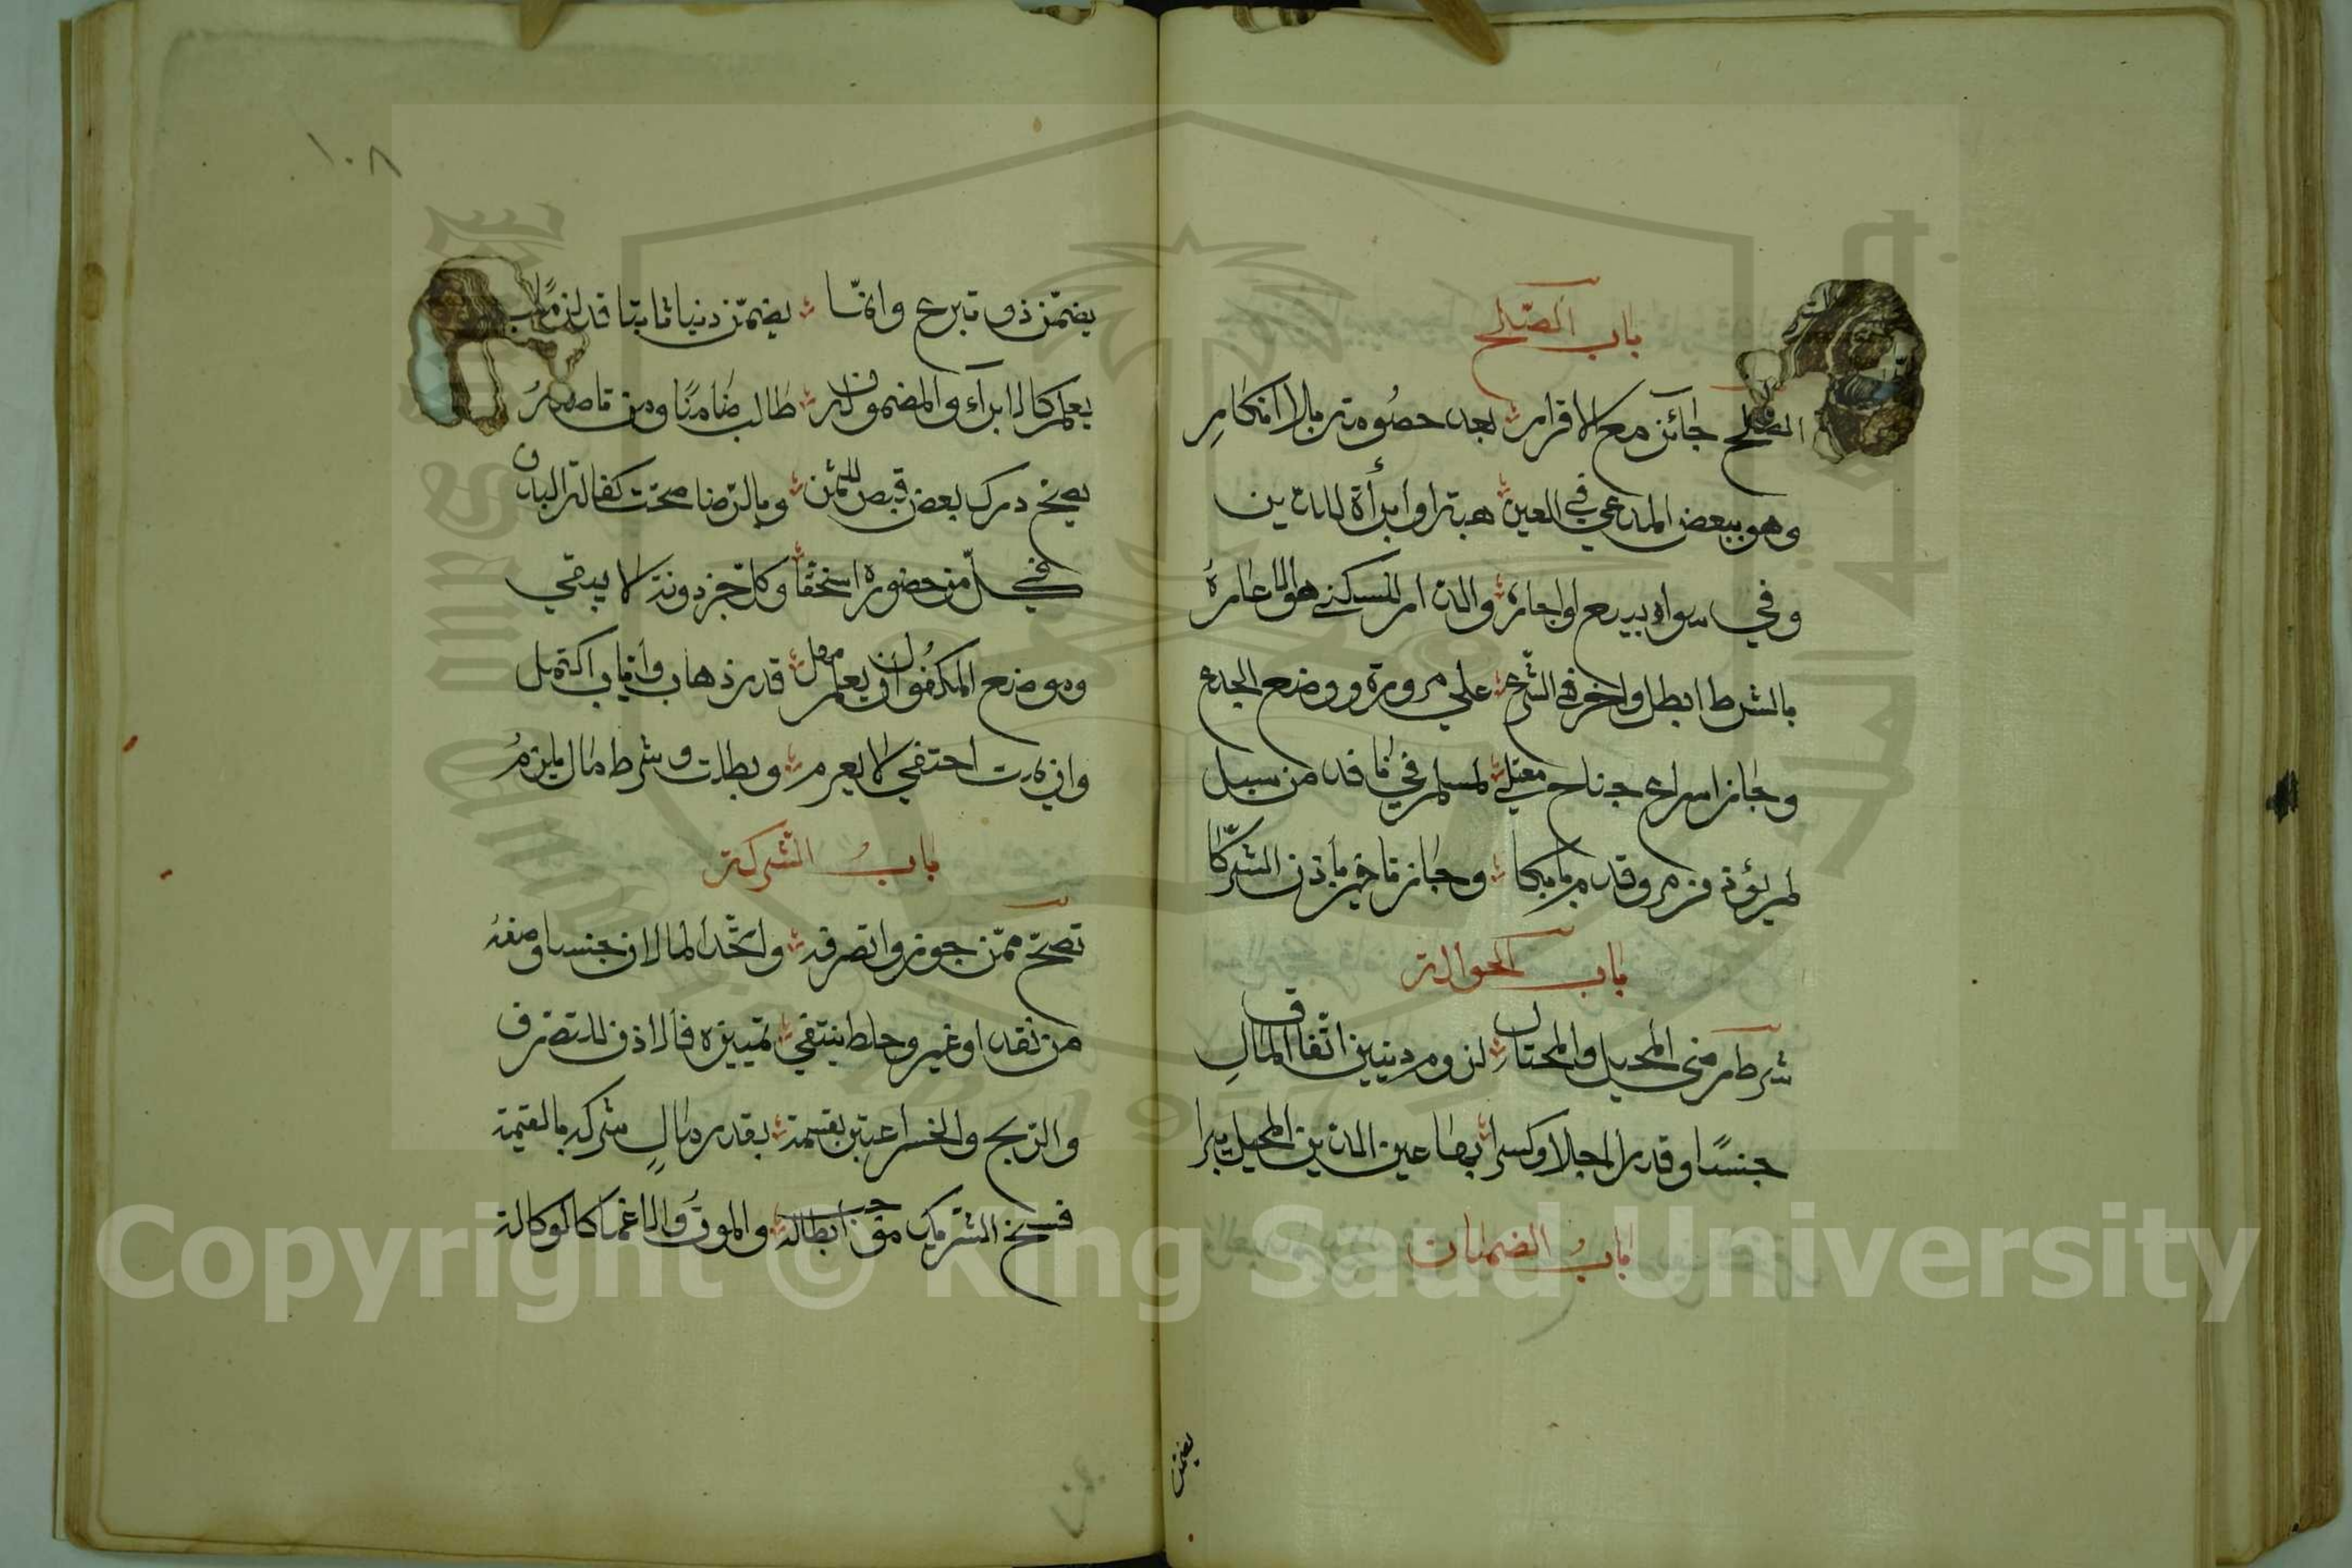 باب الصلح
الصلح جائز مع الاقرار بعد خصومة بلا انكار
وهو ببعض المدعي في العين هبة او ابرأة للدين
وفي سواه بيع او اجارة والدار للسكني هو الاعارة
بالشرط ابطل واخر في الشرع علي مروره ووضع الجدع
وجاز اسراع جناح معتلي لمسلم في نافد من سبيل
لم يؤذ من مر وقدم بابكا وجاز تاخير بأذن الشركا
باب الحوالة
شرط رضي المحيل والمحتال لزوم دينين اتفاق المال
جنسا وقدرا اجلا وكسرا بها عين الدين المحيل يبرا
باب الضمان
يضمن
١٠٨
يضمن ذو تبرع وانما يضمن دينا ثابتا قد لزما
يعلم كالابراء والمضمون له طالب ضامنا ومن تاصله
يصح درك بعض قبض للثمن وبالرضا صحت كفالة البدن
في كل من حضوره استحقا وكل جزء دونه لا يبقي
وموضع المكفول ان يعلم مهل قدر ذهاب واياب اكتمل
وان مات احتفي لا يغرم وبطلت و شرط مال يلزم
باب الشركة
تصح ممن جوزوا تصرفه واتحد المالان جنسا وصفه
من نقد او غير وخلط ينتفي تمييزه فالاذن للتصرف
والربح والخسر اعتبر بقسمة بقدر مال شركه بالقيمة
فسخ الشريك موجب ابطاله والموت والاغما كالوكالة
Copyright © King Saud University